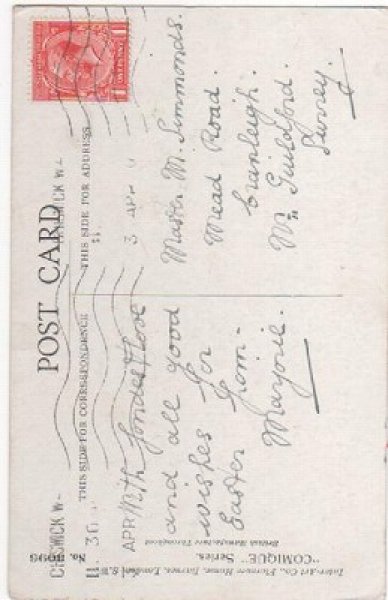 POST CARD
THIS SIDE FOR CORRESPONDENCE
THIS SIDE FOR ADDRESS
CHISWICK W4
APR
ONE PENNY
With fondest love
and all good
wishes for
Easter from
Marjorie.
Master M. Simmonds.
Mead Road.
Cranleigh.
Nr Guildford.
Surrey.
Inter-Art Co., Florence House, Barnes, London, S.W.
"COMIQUE" Series.
British Manufacture Throughout